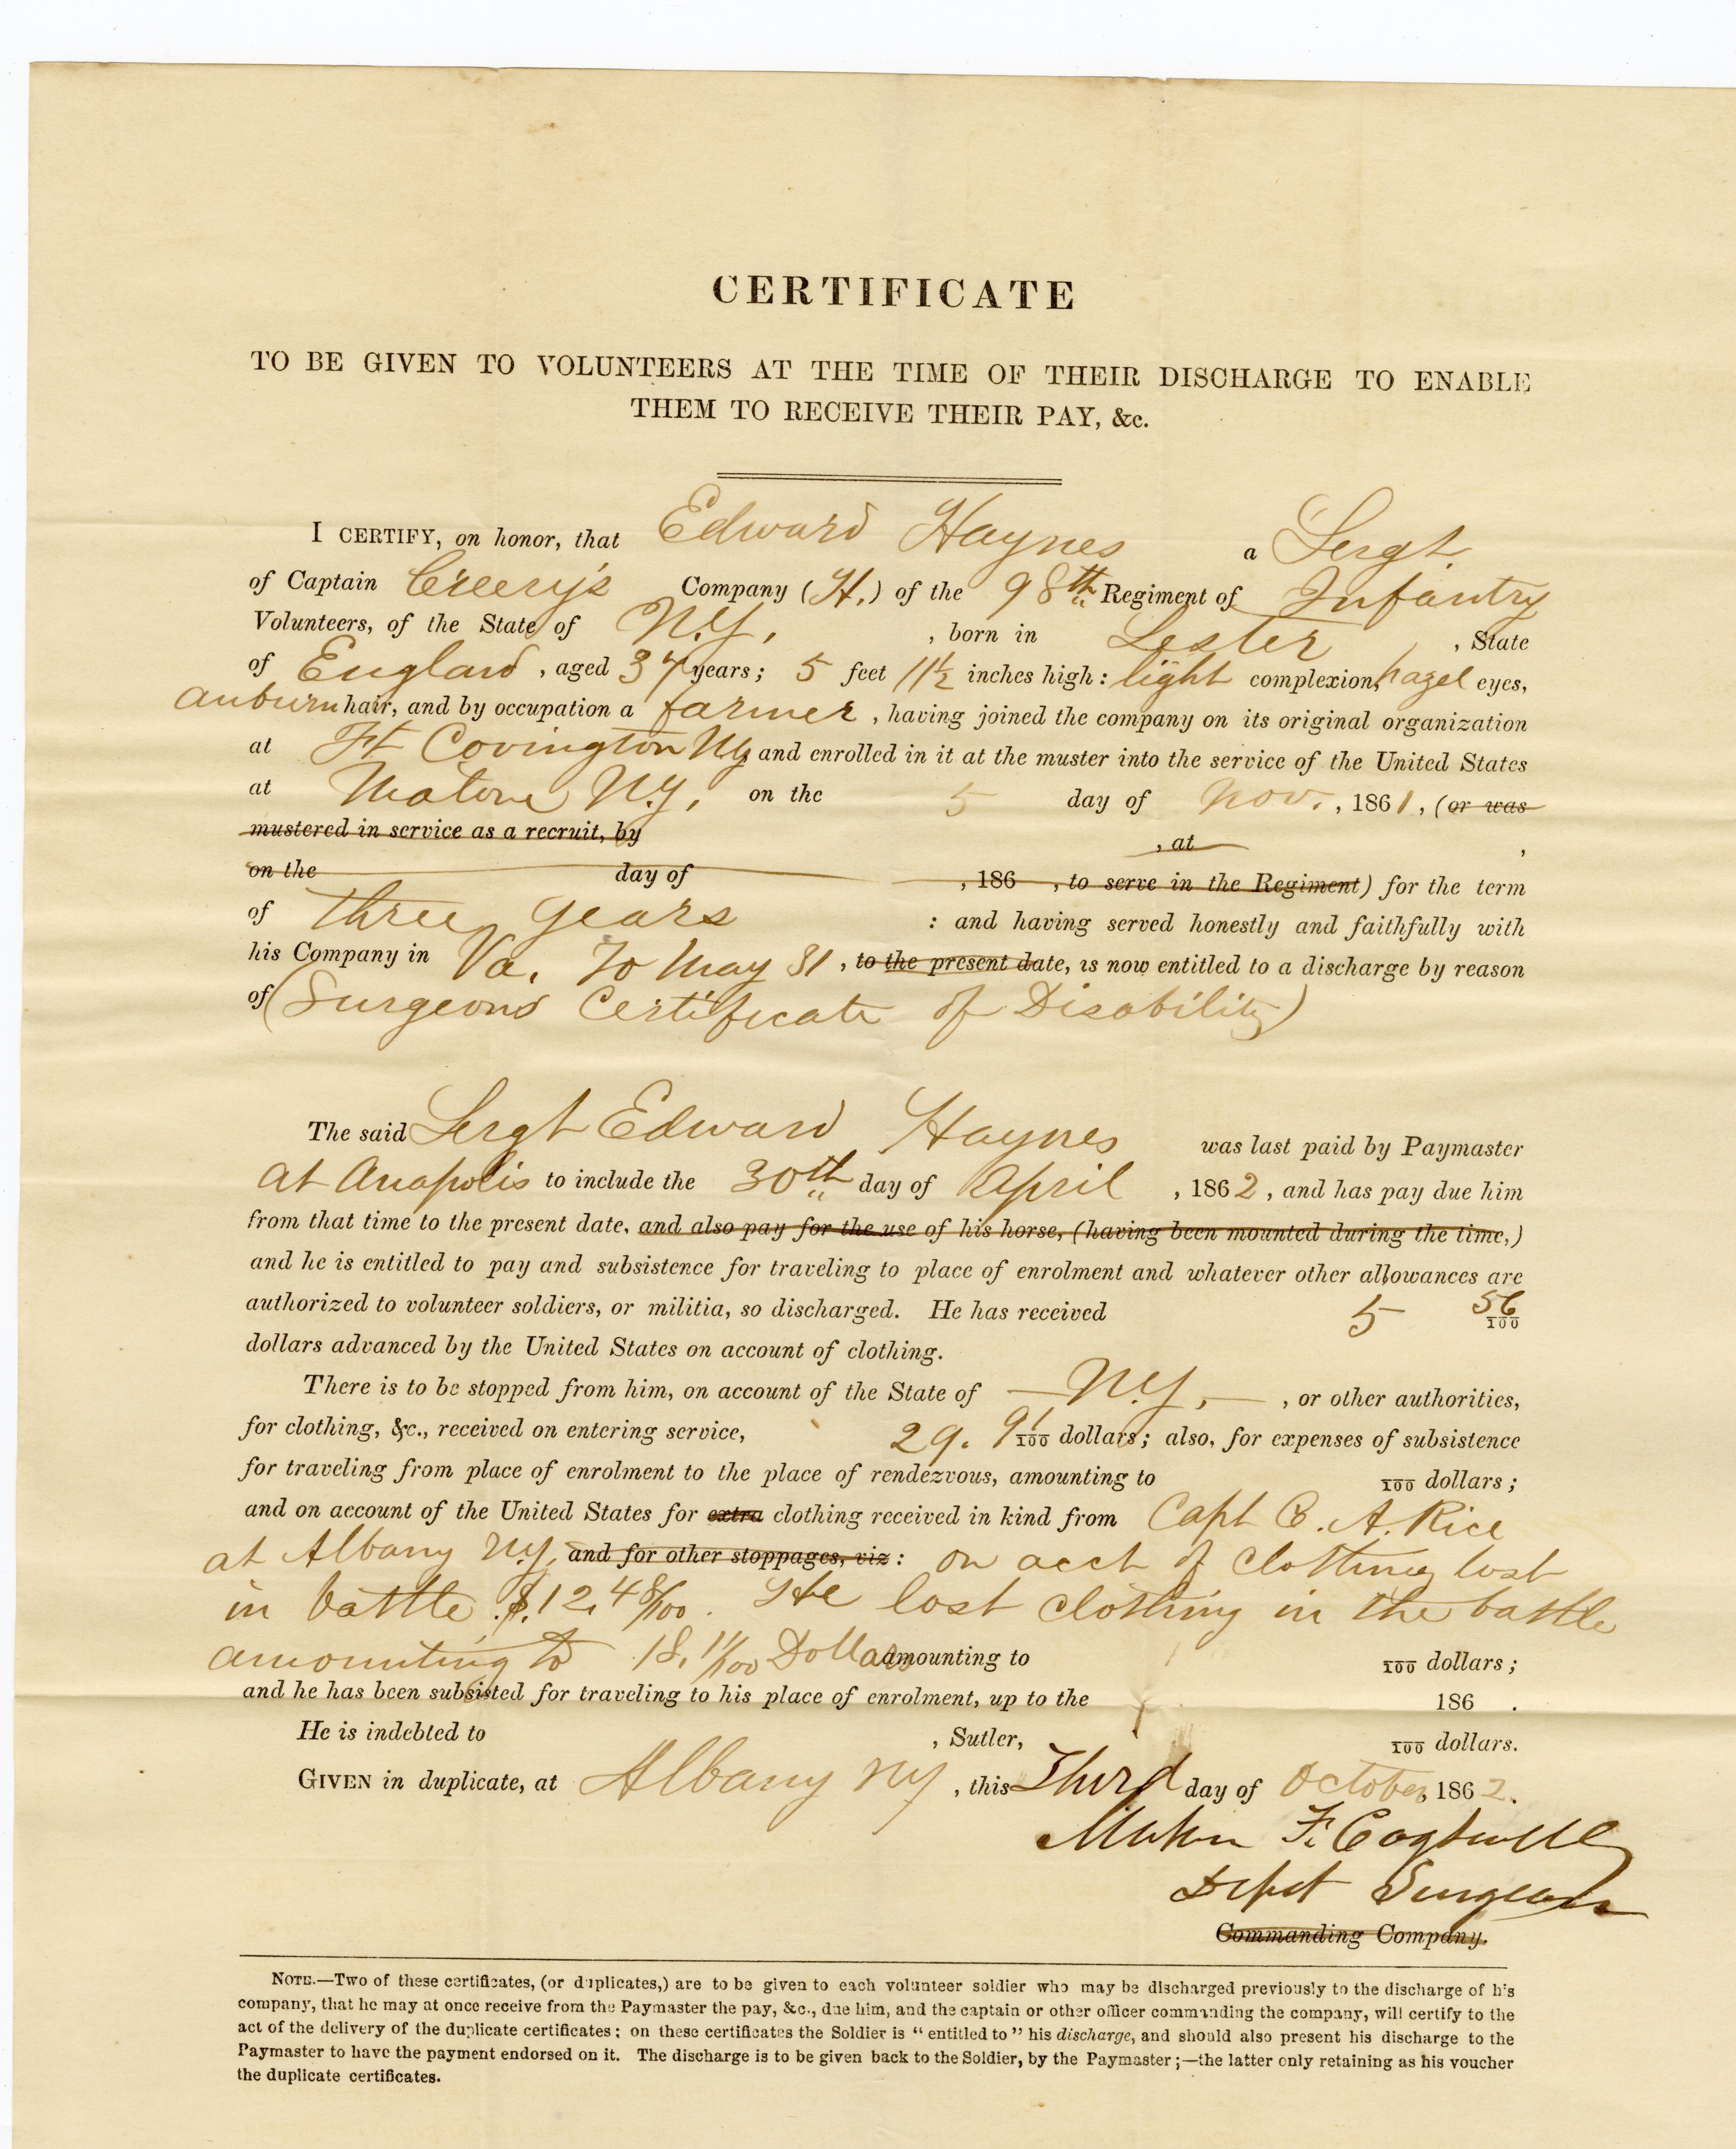 CERTIFICATE
TO BE GIVEN TO VOLUNTEERS AT THE TIME OF THEIR DISCHARGE TO ENABLE
THEM TO RECEIVE THEIR PAY, &c.
I CERTIFY, on honor, that Edward Haynes a Sergt.
of Captain Creery's Company (H.) of the 98th Regiment of Infantry
Volunteers, of the State of N.Y. , born in Lester , State
of England , aged 37 years; 5 feet 11½ inches high: light complexion, hazel eyes,
auburn hair, and by occupation a farmer , having joined the company on its original organization
at Ft Covington NY and enrolled in it at the muster into the service of the United States
at Malone N.Y, on the 5 day of Nov. , 1861 , (or was
mustered in service as a recruit, by , at ,
on the day of , 186 , to serve in the Regiment) for the term
of three years : and having served honestly and faithfully with
his Company in Va. To May 31 , to the present date, is now entitled to a discharge by reason
of (Surgeons Certificate of Disability)
The said Sergt Edward Haynes was last paid by Paymaster
at Anapolis to include the 30th day of April , 1862 , and has pay due him
from that time to the present date, and also pay for the use of his horse, (having been mounted during the time,)
and he is entitled to pay and subsistence for traveling to place of enrolment and whatever other allowances are
authorized to volunteer soldiers, or militia, so discharged. He has received 5 56/100
dollars advanced by the United States on account of clothing.
There is to be stopped from him, on account of the State of N.Y. , or other authorities,
for clothing, &c., received on entering service, 29. 91/100 dollars; also, for expenses of subsistence
for traveling from place of enrolment to the place of rendezvous, amounting to /100 dollars;
and on account of the United States for extra clothing received in kind from Capt C. A. Rice
at Albany N.Y, and for other stoppages, viz: on acct of Clothing lost
in battle $.12.48/100. He lost clothing in the battle
amounting to 18.11/100 Dollars amounting to /100 dollars;
and he has been subsisted for traveling to his place of enrolment, up to the 186 .
He is indebted to , Sutler, /100 dollars.
GIVEN in duplicate, at Albany NY , this Third day of October, 1862.
F. Cogswell
Depot Surgeon
Commanding Company.
NOTE.—Two of these certificates, (or duplicates,) are to be given to each volunteer soldier who may be discharged previously to the discharge of his
company, that he may at once receive from the Paymaster the pay, &c., due him, and the captain or other officer commanding the company, will certify to the
act of the delivery of the duplicate certificates; on these certificates the Soldier is "entitled to" his discharge, and should also present his discharge to the
Paymaster to have the payment endorsed on it. The discharge is to be given back to the Soldier, by the Paymaster;—the latter only retaining as his voucher
the duplicate certificates.